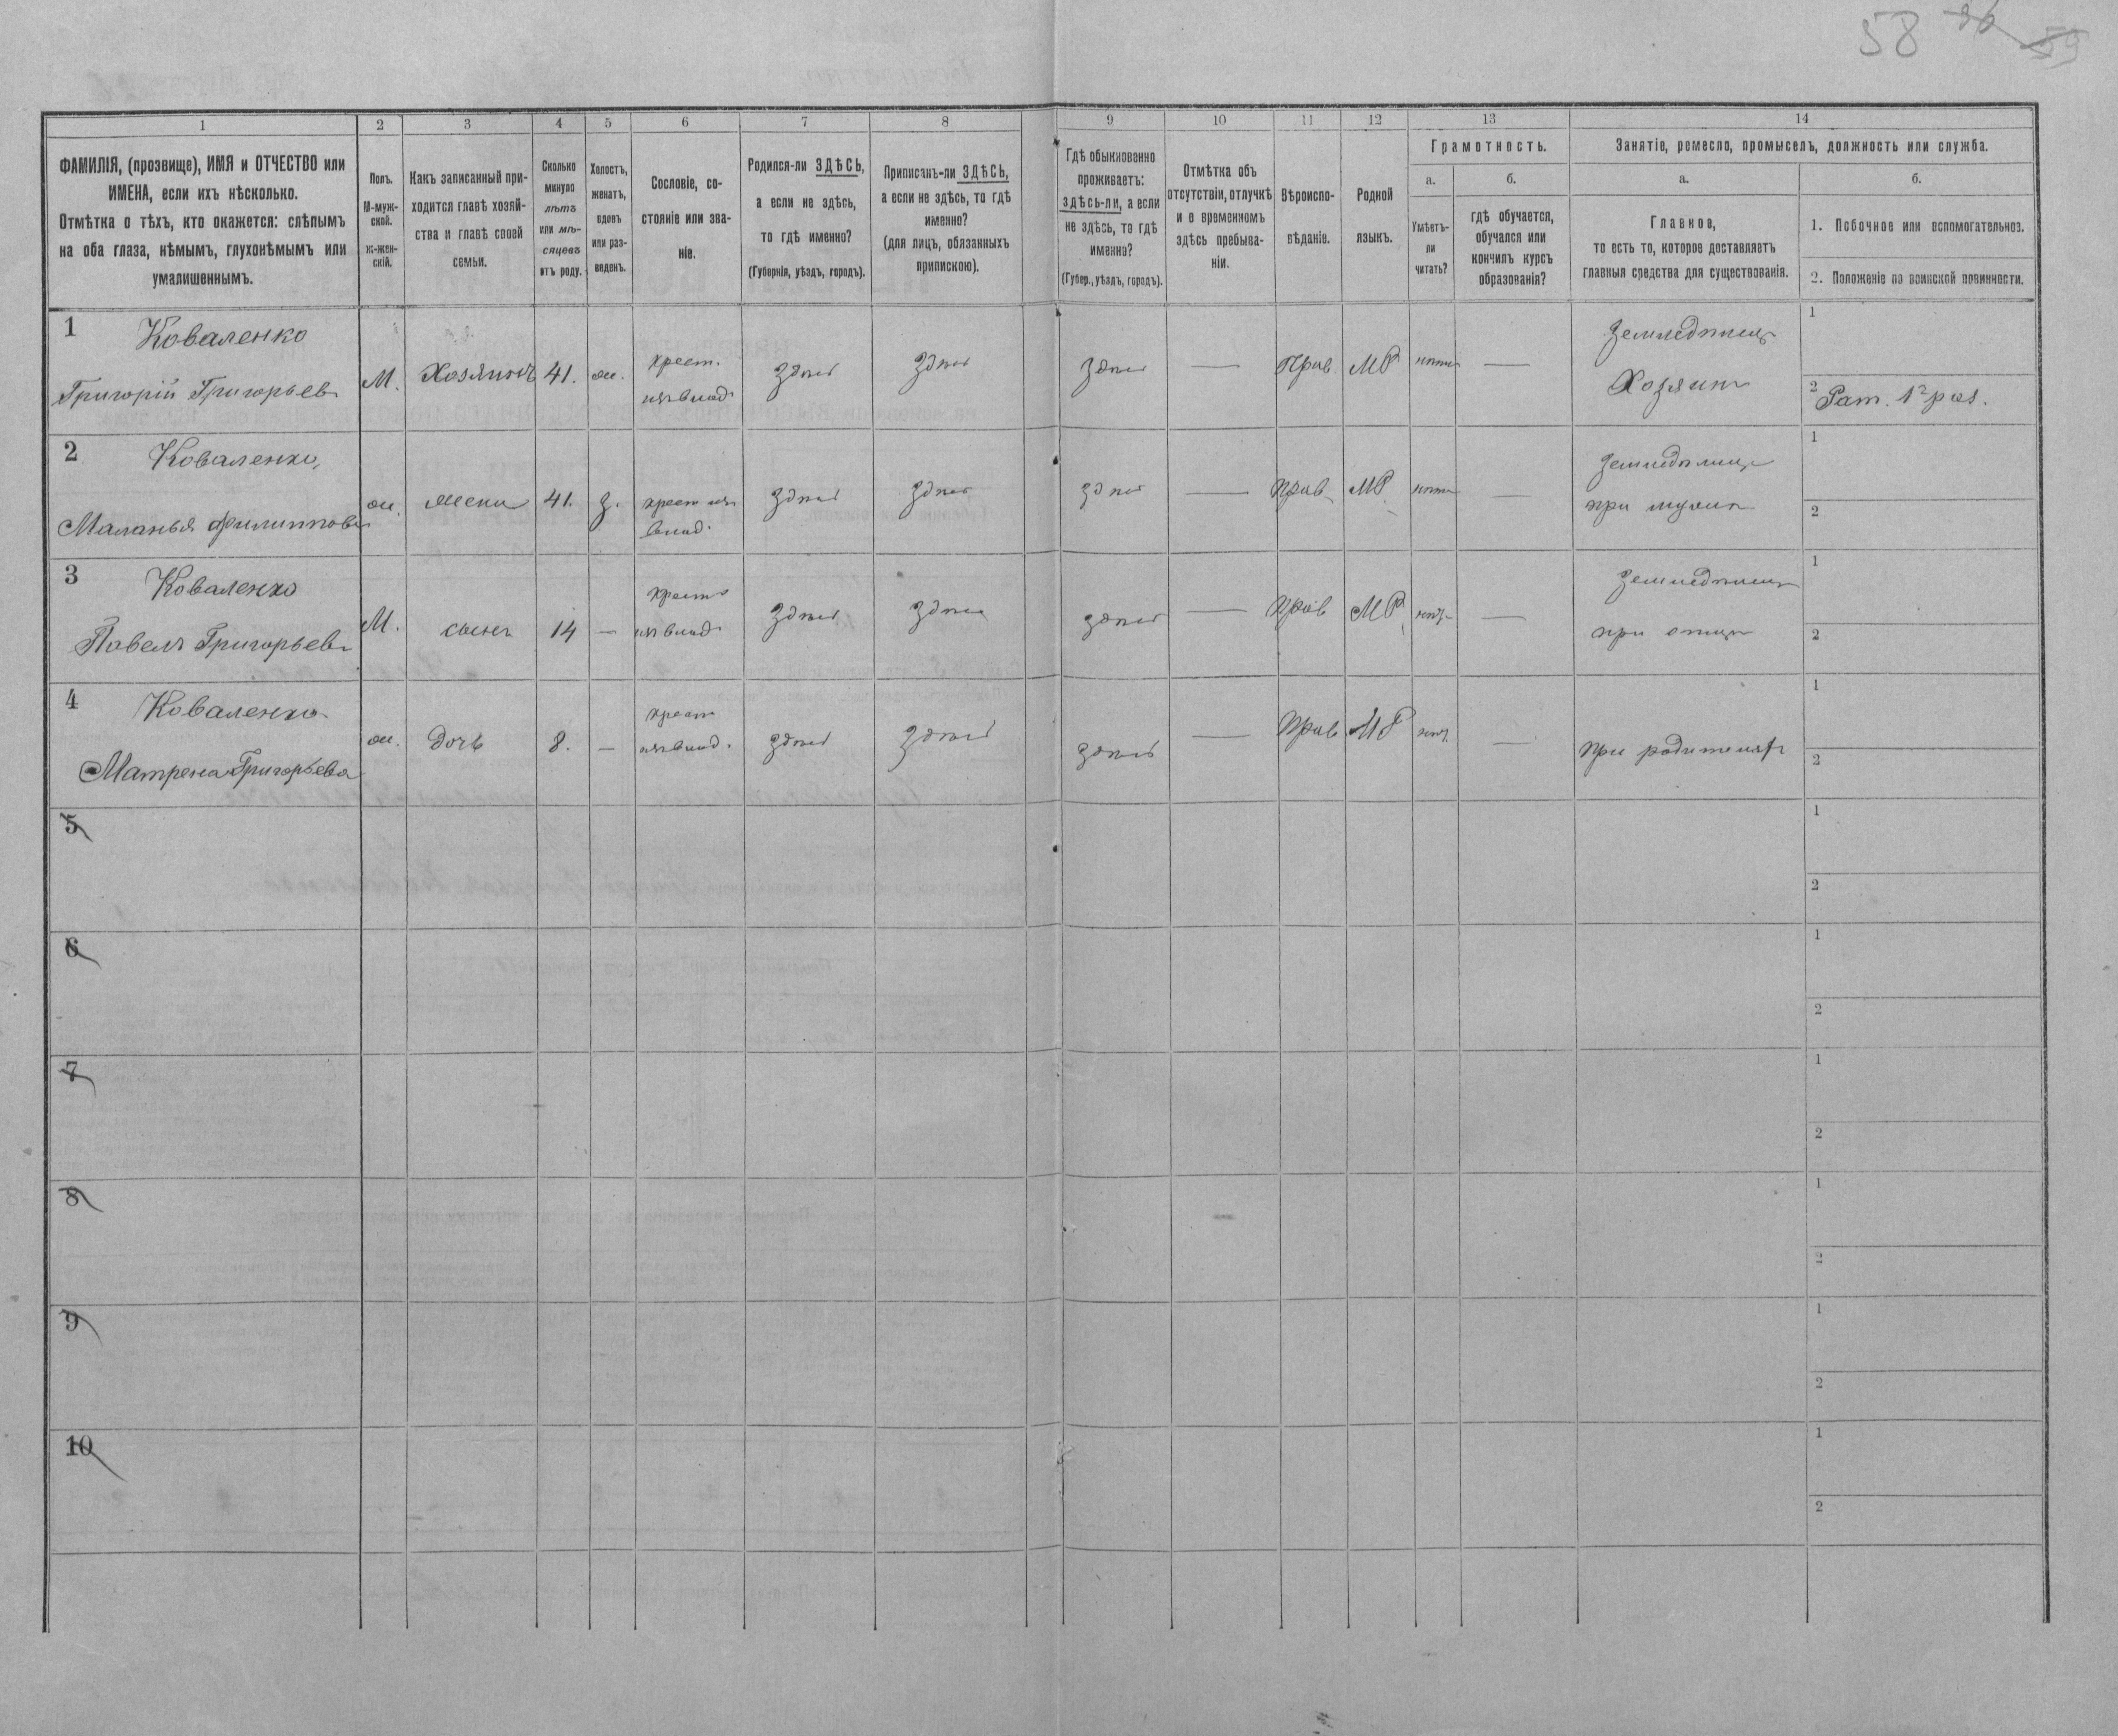 58 96 59
1
2
3
4
5
6
7
8
9
10
11
12
13
14
ФАМИЛІЯ, (прозвище), ИМЯ и ОТЧЕСТВО или
ИМЕНА, если ихъ нѣсколько.
Отмѣтка о тѣхъ, кто окажется: слѣпымъ
на оба глаза, нѣмымъ, глухонѣмымъ или
умалишеннымъ.
Полъ.
М-муж-
ской.
ж-жен-
скій.
Какъ записанный при-
ходится главѣ хозяй-
ства и главѣ своей
семьи.
Сколько
минуло
лѣтъ
или мѣ-
сяцевъ
отъ роду.
Холостъ,
женатъ,
вдовъ
или раз-
веденъ.
Сословіе, со-
стояніе или зва-
ніе.
Родился-ли ЗДѢСЬ,
а если не здѣсь,
то гдѣ именно?
(Губернія, уѣздъ, городъ).
Приписанъ-ли ЗДѢСЬ,
а если не здѣсь, то гдѣ
именно?
(для лицъ, обязанныхъ
припискою).
Гдѣ обыкновенно
проживаетъ:
здѣсь-ли, а если
не здѣсь, то гдѣ
именно?
(Губер., уѣздъ, городъ).
Отмѣтка объ
отсутствіи, отлучкѣ
и о временномъ
здѣсь пребыва-
ніи.
Вѣроиспо-
вѣданіе.
Родной
языкъ.
Грамотность.
а.
Умѣетъ-
ли
читать?
б.
гдѣ обучается,
обучался или
кончилъ курсъ
образованія?
Занятіе, ремесло, промыселъ, должность или служба.
а.
Главное,
то есть то, которое доставляетъ
главныя средства для существованія.
б.
1. Побочное или вспомогательное.
2. Положеніе по воинской повинности.
1 Коваленко
Григорій Григорьевъ
М. Хозяинъ 41. ж. крест.
из влад. здѣсь здѣсь здѣсь — Прав. МР нѣтъ —
Земледѣлецъ
Хозяинъ
1
2 Рат. 1го раз.
2 Коваленко,
Маланья Филиппова
ж. жена 41. з. крест из
влад. здѣсь здѣсь здѣсь — Прав. МР нѣтъ —
Земледѣлецъ
при мужѣ
1
2
3 Коваленко
Павелъ Григорьевъ
М. сынъ 14 — крест
из влад. здѣсь здѣсь здѣсь — Прав МР нѣтъ —
Земледѣлецъ
при отцѣ
1
2
4 Коваленко
Матрена Григорьева
ж. дочь 8. — крест
из влад. здѣсь здѣсь здѣсь — Прав МР нѣтъ —
при родителях
1
2
5
1
2
6
1
2
7
1
2
8
1
2
9
1
2
10
1
2